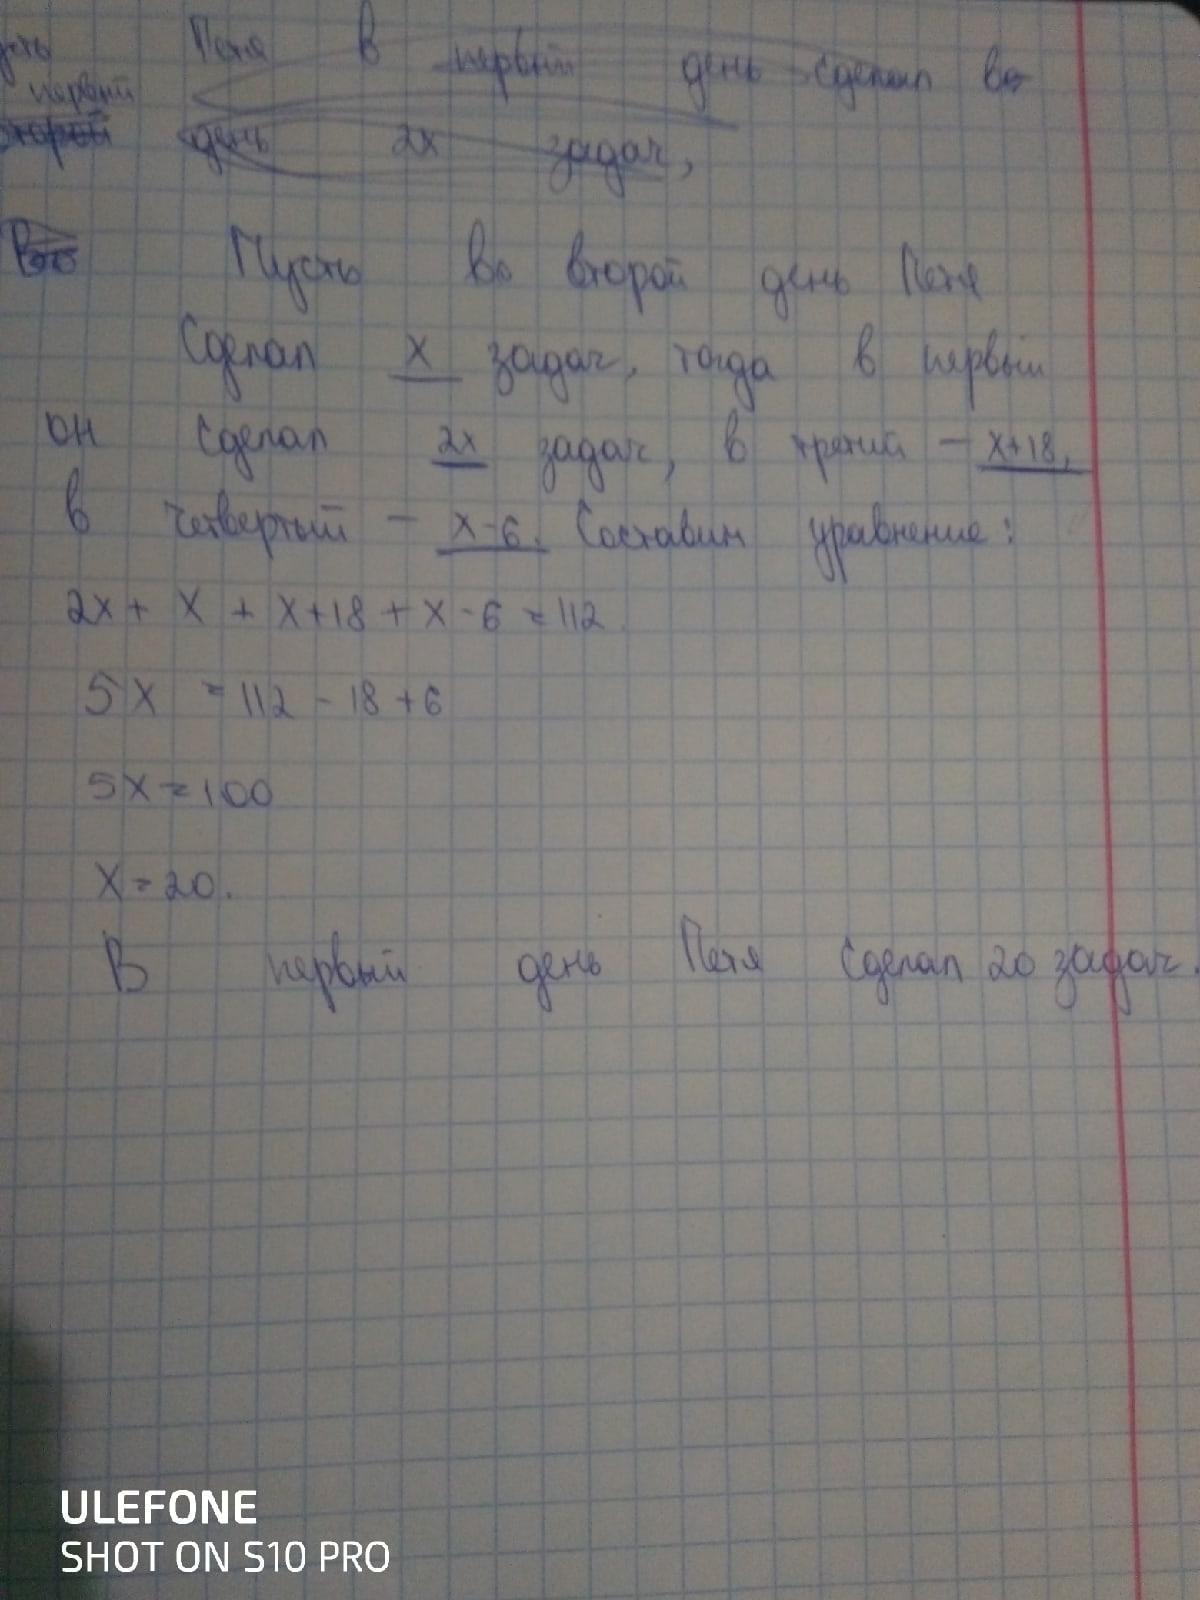 Петя в первый день сделал во
первый
второй день 2х задач,
Во Пусть во второй день Петя
сделал х задач, тогда в первый
он сделал 2х задач, в третий – х+18,
в четвертый – х-6. Составим уравнение:
2х + х + х+18 + х-6 = 112.
5х = 112 - 18 + 6
5х = 100
х = 20.
В первый день Петя сделал 20 задач.
ULEFONE
SHOT ON S10 PRO